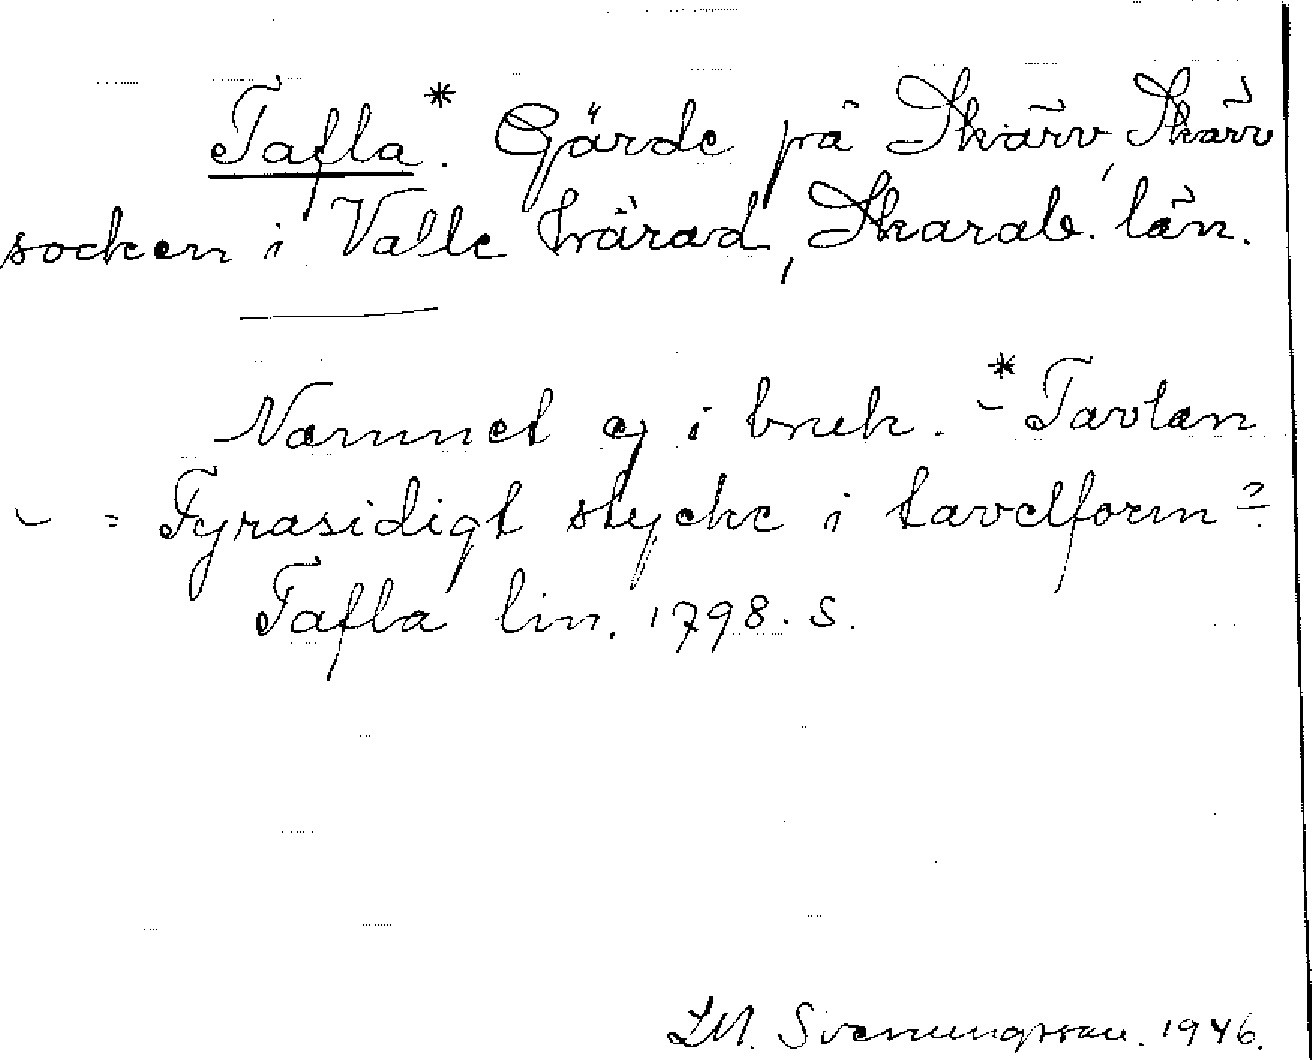 Tafla*. Gärde på Skärv, Skärv
socken i Valle härad, Skarab. län.
Namnet ej i bruk. - *Tavlan
- = Fyrasidigt stycke i tavelform?
Tafla lin. 1798. S.
LM. Svenungsson. 1946.